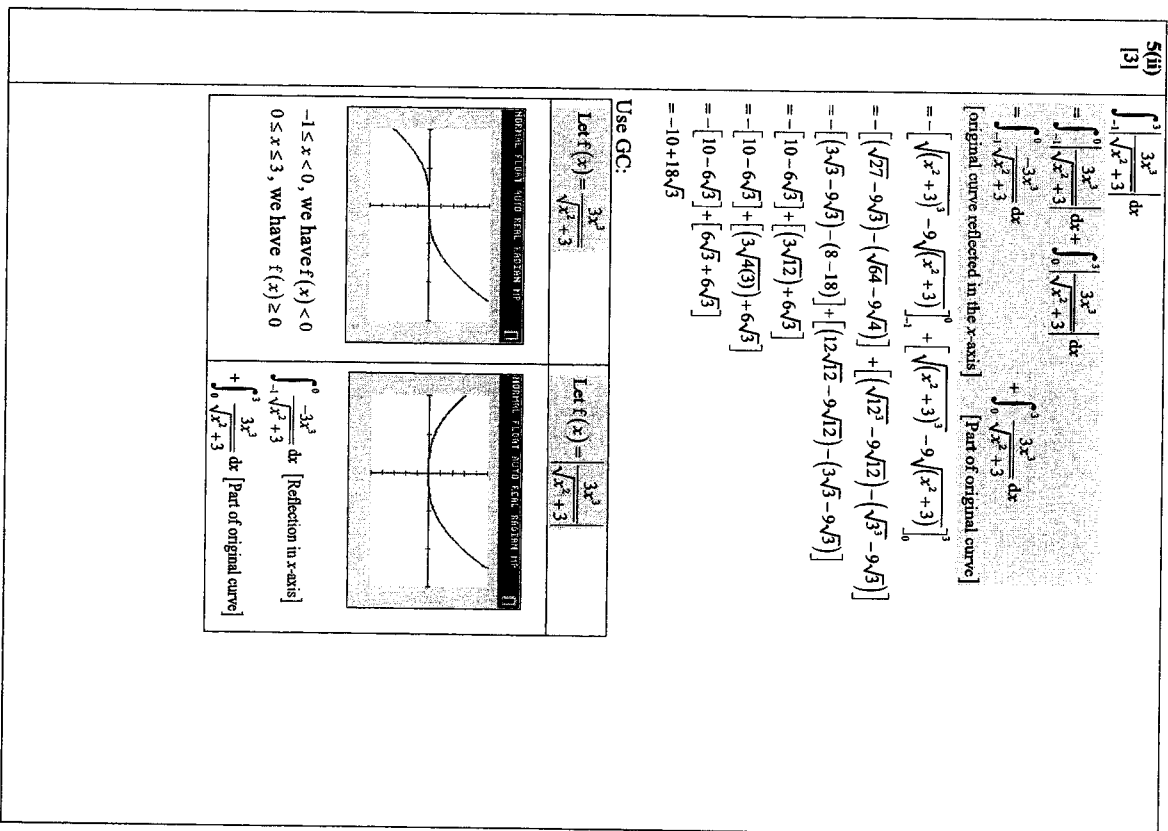 5(ii)
[3]
∫₋₁³ |3x³/√(x²+3)| dx
= ∫₋₁⁰ |3x³/√(x²+3)| dx + ∫₀³ |3x³/√(x²+3)| dx
= ∫₋₁⁰ −3x³/√(x²+3) dx + ∫₀³ 3x³/√(x²+3) dx
[original curve reflected in the x-axis] [Part of original curve]
= −[√(x²+3)³ − 9√(x²+3)]₋₁⁰ + [√(x²+3)³ − 9√(x²+3)]₀³
= −[(√27 − 9√3) − (√64 − 9√4)] + [(√12³ − 9√12) − (√3³ − 9√3)]
= −[(3√3 − 9√3) − (8 − 18)] + [(12√12 − 9√12) − (3√3 − 9√3)]
= −[10 − 6√3] + [(3√12) + 6√3]
= −[10 − 6√3] + [(3√4(3)) + 6√3]
= −[10 − 6√3] + [6√3 + 6√3]
= −10 + 18√3
Use GC:
Let f(x) = 3x³/√(x²+3)
Let f(x) = |3x³/√(x²+3)|
NORMAL FLOAT AUTO REAL RADIAN MP
NORMAL FLOAT AUTO REAL RADIAN MP
−1 ≤ x < 0, we have f(x) < 0
0 ≤ x ≤ 3, we have f(x) ≥ 0
∫₋₁⁰ −3x³/√(x²+3) dx [Reflection in x-axis]
+ ∫₀³ 3x³/√(x²+3) dx [Part of original curve]